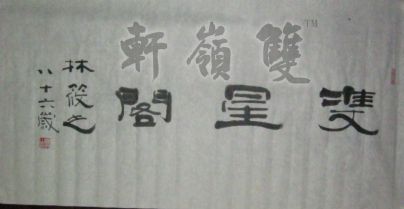 雙嶺軒™
雙星閣
林筱之
八十六歲